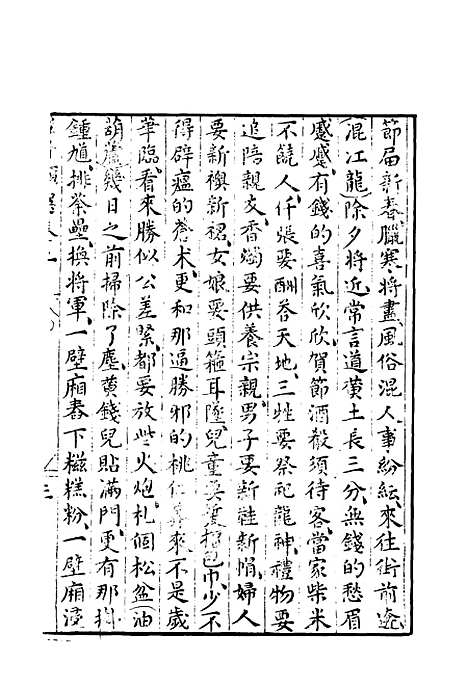 節届新春臘寒將盡風俗混人事紛紜來往街前遶
混江龍除夕將近常言道黄土長三分無錢的愁眉
蹙蹙有錢的喜氣欣欣賀節酒殽須待客當家柴米
不饒人仟張要酬荅天地三牲要祭祀龍神禮物要
追陪親友香燭要供養宗親男子要新鞋新帽婦人
要新襖新裙女娘要頭箍耳墜兒童要巾少不
得辟瘟的蒼术更和那逼勝邪的桃來不是歲
華臨看來勝似公差緊都要放些火炮札個松盆油
葫蘆幾日之前掃除了塵黄錢兒貼滿門更有那
鍾馗排荼壘換將軍一壁廂舂下糍糕粉一壁廂
三